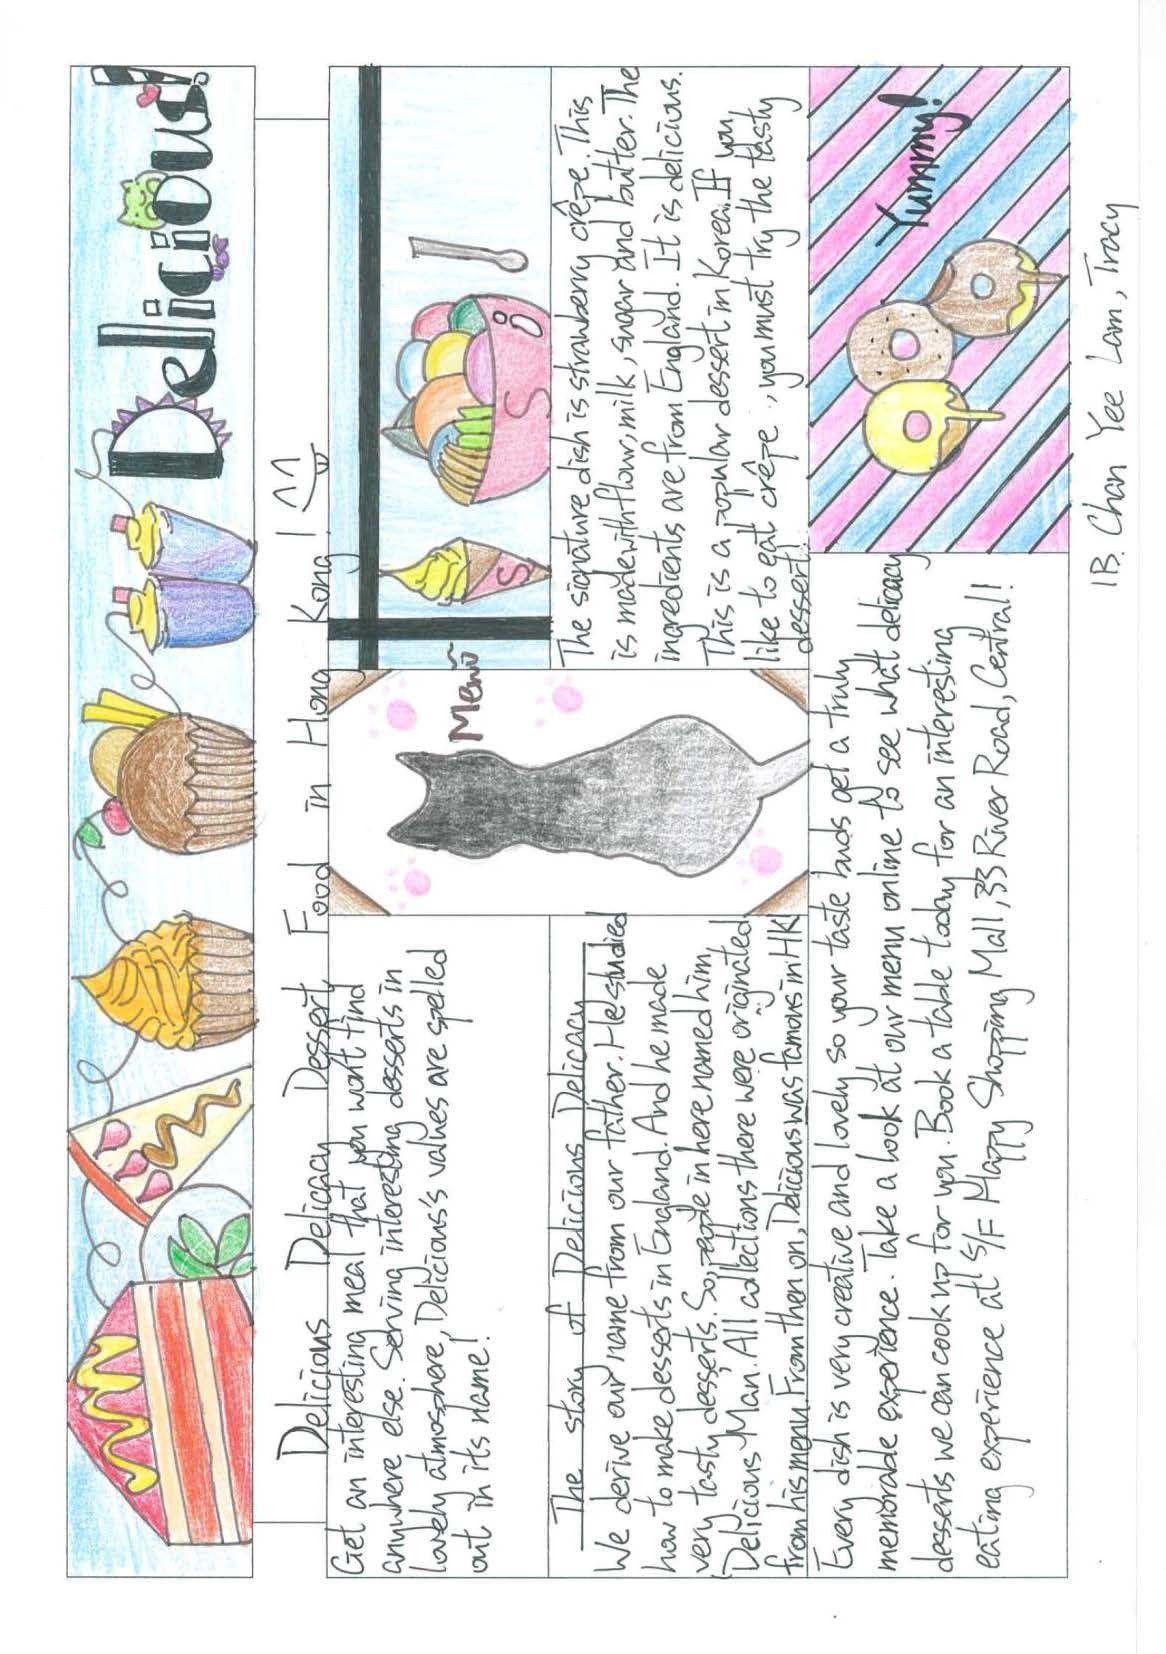 Delicious!
Delicious Delicacy Dessert Food in Hong Kong
Get an interesting meal that you won't find
anywhere else. Serving interesting desserts in
lovely atmosphere, Delicious's values are spelled
out in its name!
Menu
S
S
The signature dish is strawberry crêpe. This
is made with flour, milk, sugar and butter. The
ingredients are from England. It is delicious.
This is a popular dessert in Korea. If you
like to eat crêpe., you must try the tasty
dessert!
The story of Delicious Delicacy
We derive our name from our father. He studied
how to make desserts in England. And he made
very tasty desserts. So, people in here named him
'Delicious Man'. All collections there were originated
from his menu. From then on, Delicious was famous in HK!
Every dish is very creative and lovely so your taste buds get a truly
memorable experience. Take a look at our menu online to see what delicacy
desserts we can cook up for you. Book a table today for an interesting
eating experience at 5/F Happy Shopping Mall, 33 River Road, Central!
Yummy!
1B. Chan Yee Lam, Tracy